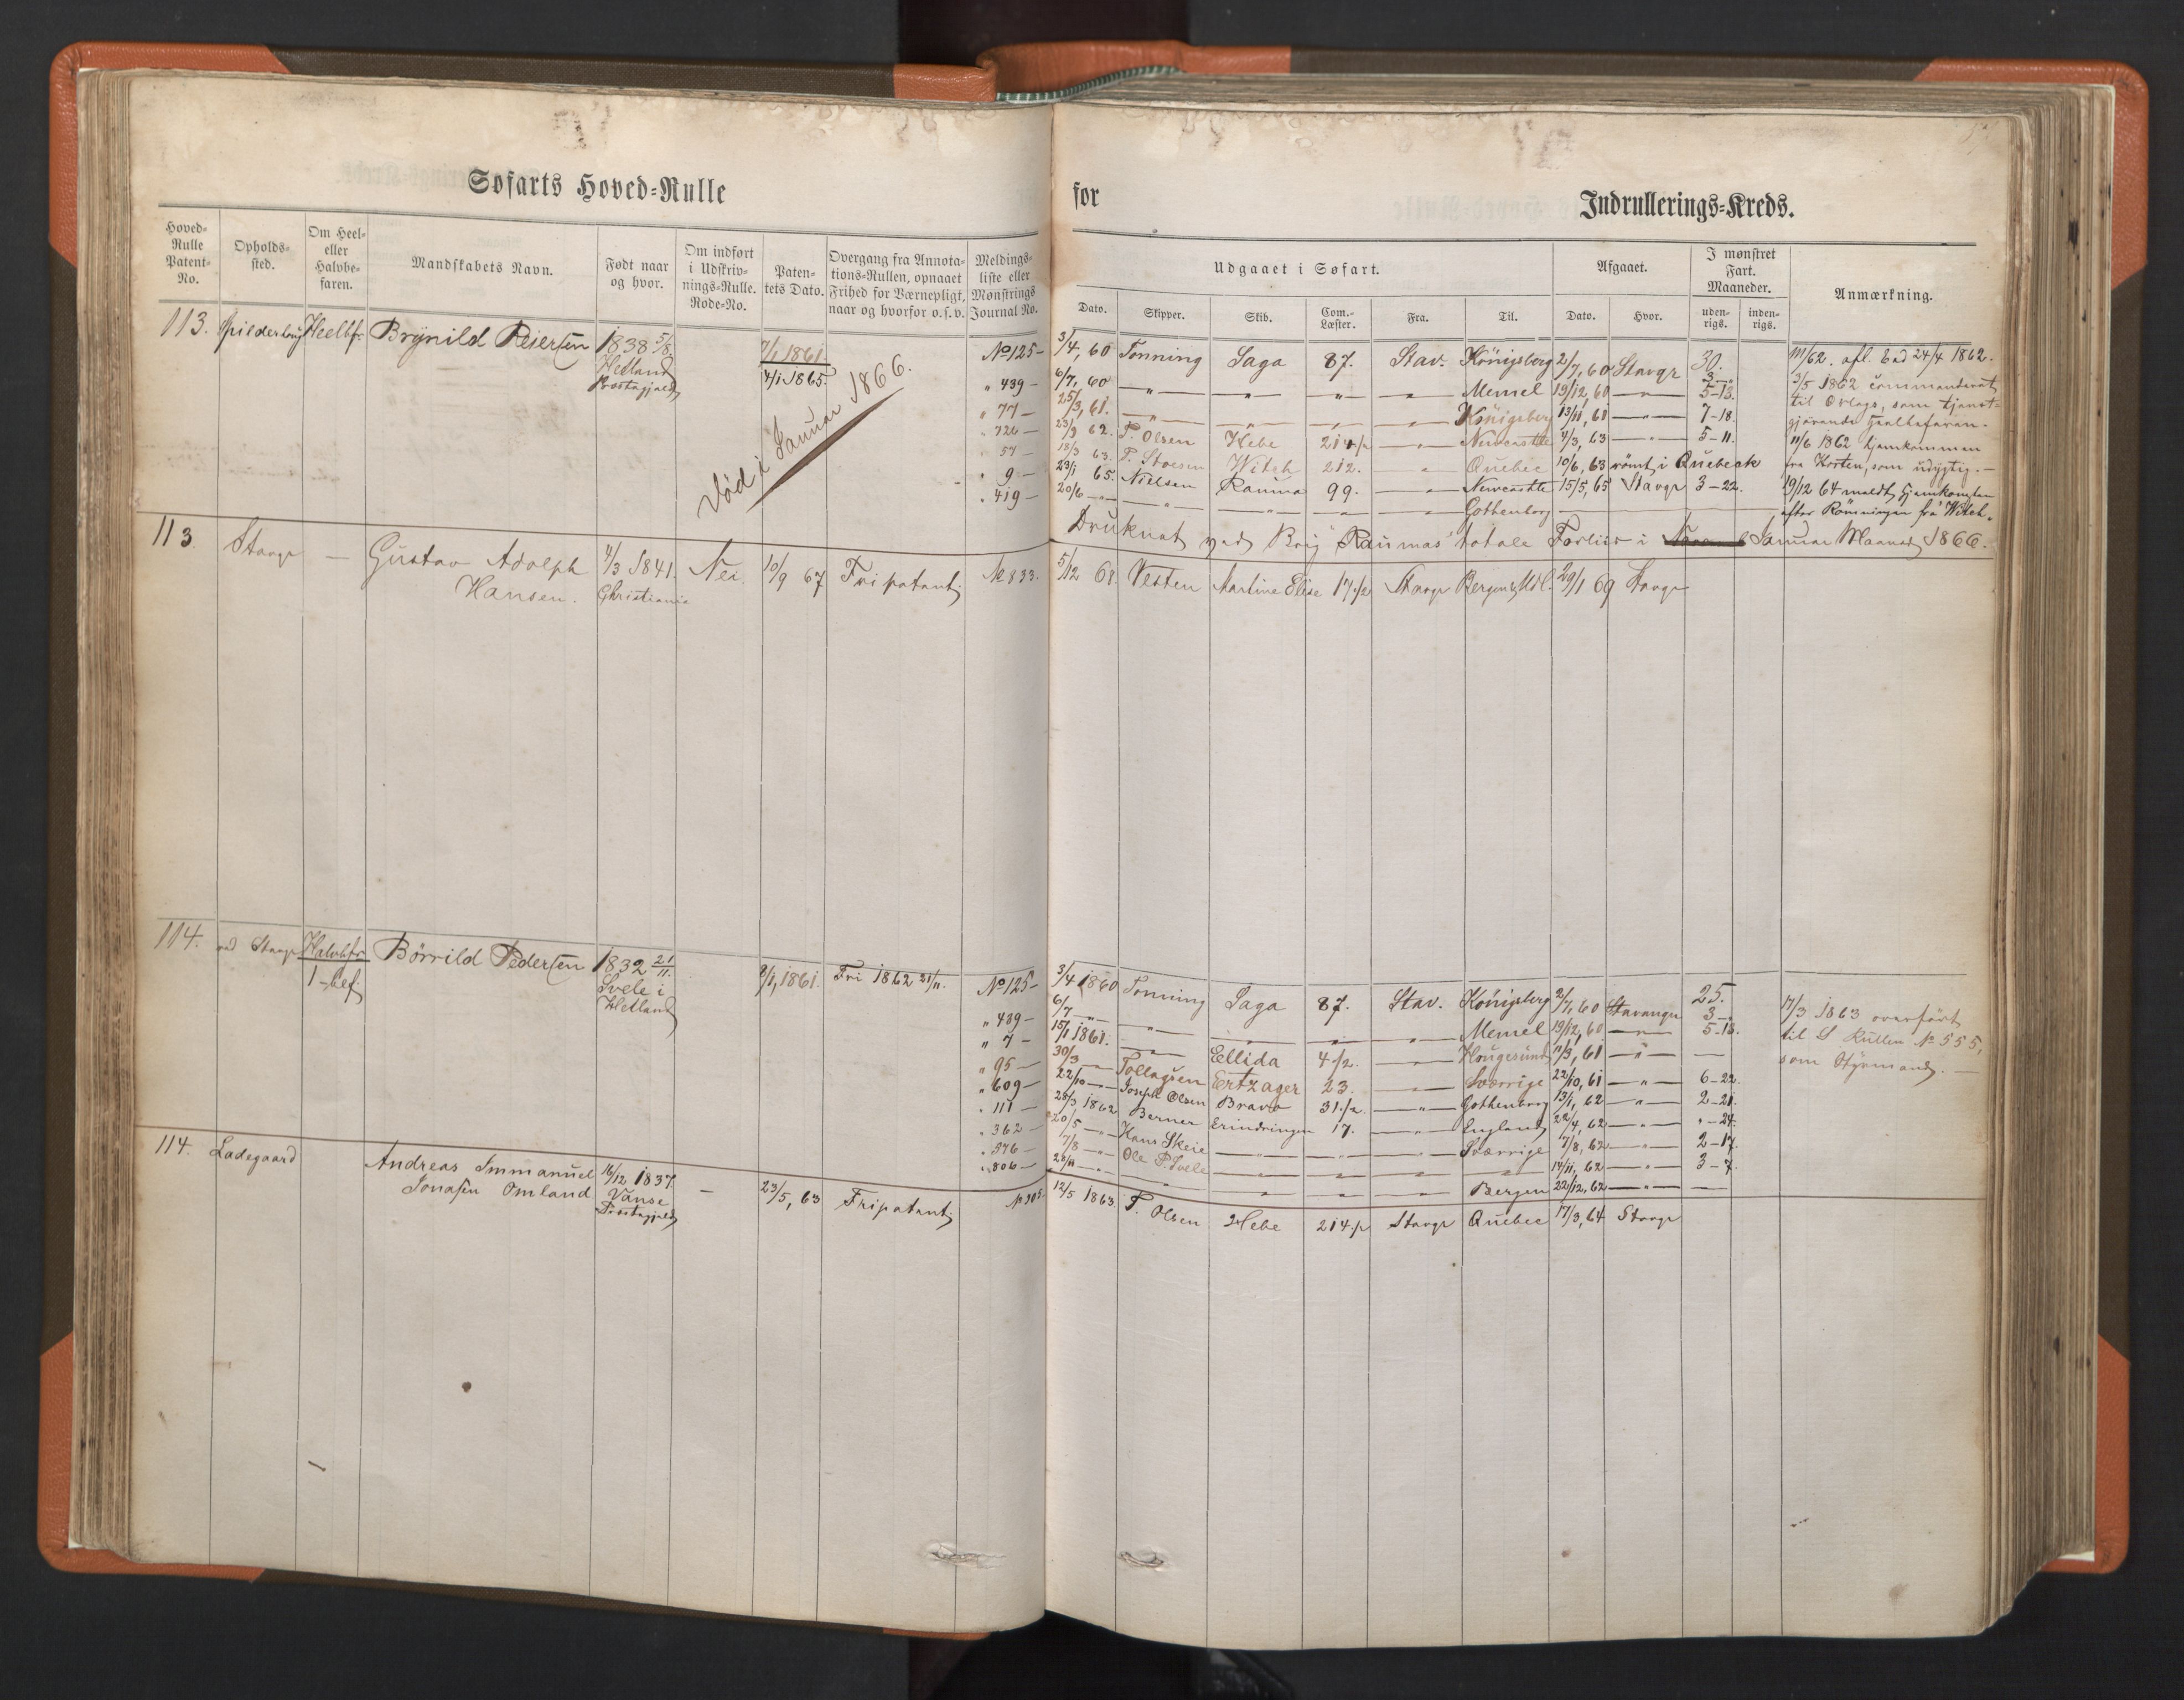 Søfarts Hoved-Rulle
for
Indrullerings-Kreds.
Hoved-Rulle Patent-No.
Opholds-sted.
Om Heel- eller Halvbe-faren.
Mandskabets Navn.
Født naar og hvor.
Om indført i Udskriv-nings-Rulle. Rode-No.
Paten-tets Dato.
Overgang fra Annota-tions-Rullen, opnaaet Frihed for Værnepligt, naar og hvorfor o.s.v.
Meldings-liste eller Mønstrings Journal No.
Udgaaet i Søfart.
Afgaaet.
I mønstret Fart. Maaneder.
Anmærkning.
Dato. Skipper. Skib. Com.-Læster. Fra. Til. Dato. Hvor. uden-rigs. inden-rigs.
113. Heelbfr. Brynild Reiersen 1838 5/8. 7/1 1861.
Hetland 4/1 1865.
Præstegjeld
Død i Januar 1866.
No 125 - 3/4, 60 Tonning Saga 87. Stav. Königsberg 2/7, 60 Stavgr 30.
" 439 - 6/7, 60 — " — — " — " — " — Memel 19/12, 60 — " — 5-13.
" 77 - 25/3, 61. — " — — " — — " — — " — Königsberg 13/11, 61 — " — 7-18.
" 726 - 23/9 62. P. Olsen Hebe 214 1/2 — " — Newcastle 4/3, 63 — " — 5-11.
" 57 - 18/3 63. P. Stoesen Witch 212. " Quebec 10/6, 63 römt i Quebeck
" 9 - 23/1 65. Nielsen Rauma 99. — " — Newcastle 15/5, 65 Stavgr 3-22.
" 419 - 20/6 — " — — " — — " — — " — — " — Gothenborg
111/62. afl. Ed 24/4 1862.
3/5 1862 commanderet
til Orlogs, som tjenst-
gjørende Heelbefaren.
11/6 1862 hjemkommen
fra Horten, som udygtig. —
19/12 64 meldt hjemkommen
efter Römningen fra Witch.
Druknet ved Brig Raumas totale Forliis i Januar Maaned 1866.
113 Stavgr — Gustav Adolph 4/3 1841. Nei. 10/9 67 Fripatent. No 833. 5/12 68. Vesten Martine Elise 17 1/2 Stavgr Bergen & Udl. 29/1 69 Stavgr
Hansen. Christiania
114. ved Stavgr Halvbfr. Børrild Pedersen 1832 21/11. 8/1, 1861. Fri 1862 21/11.
1 - bef. Svele i
Hetland
No 125 - 3/4 1860 Tonning Saga 87. Stav. Königsberg 2/7, 60 Stavanger 25.
" 439 - 6/7 — " — — " — — " — — " — Memel 19/12, 60 — " — 5-13.
" 7 - 15/1 1861. — " — Ellida 4 1/2. — " — Hougesund 11/3, 61 — " — —
" 95 - 30/3 — " — Tollagsen Ertzager 23. — " — Sverrige 22/10, 61 — " — 6-22.
" 609 - 22/10 — " — Joseph Olsen Bravo 31 1/2. — " — Gothenborg 13/1, 62 — " — 2-21.
" 111 - 28/3 1862 Berner Erindringen 17. — " — England 22/4, 62 — " — " - 24.
" 362 - 20/5 — " — Hans Skeie — " — — " — — " — Sverrige 7/8, 62 — " — 2-17.
" 576 - 7/8 — " — Ole P. Svele — " — — " — — " — — " — 14/11, 62 — " — 3-7.
" 806 - 28/11 — " — — " — — " — — " — — " — Bergen 22/12, 62 — " — —
17/3 1863 overført
til S Rullen No 555,
som Styrmand. —
114. Ladegaard Andreas Immanuel 16/12 1837. — 23/5, 63 Fripatent. No 305. 12/5 1863. P. Olsen Hebe 214 1/2 Stavgr Quebec 17/3, 64 Stavgr
Jonasen Omland Vanse
Præstegjeld